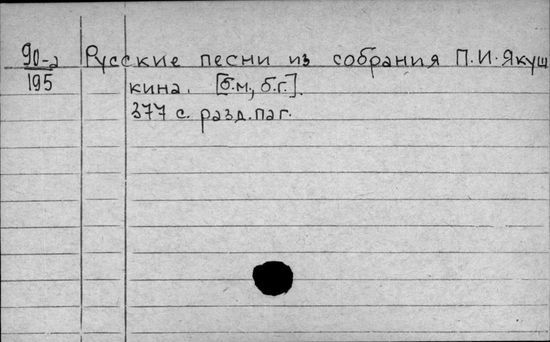 90-2 Русские песни из собрания П.И.Якуш
195 кина. [б.м., б.г.].
377 с. разд.паг.